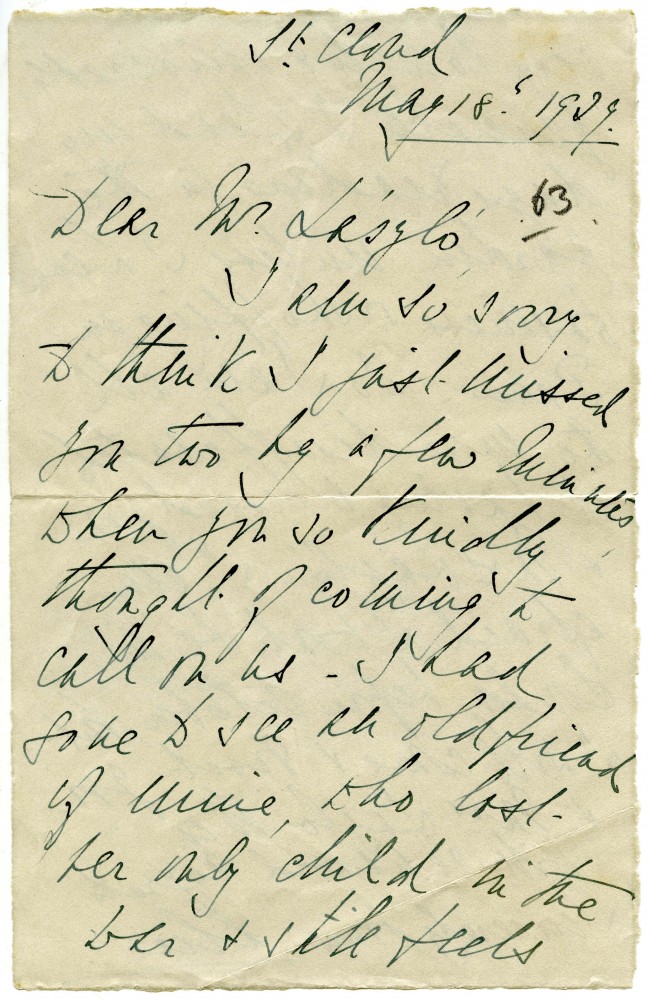 St Cloud
May 18th 1929.
63
Dear Mr László,
I am so sorry
to think I just missed
you two by a few minutes,
when you so kindly
thought of coming to
call on us - I had
gone to see an old friend
of mine, who lost
her only child in the
War & still feels